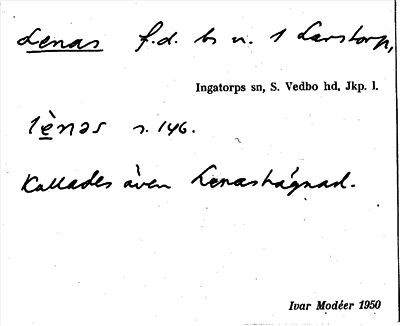 Lenas f.d. bs u. 1 Larstorp,
Ingatorps sn, S. Vedbo hd, Jkp. l.
lènəs s. 146.
Kallades även Lenashägnad.
Ivar Modéer 1950